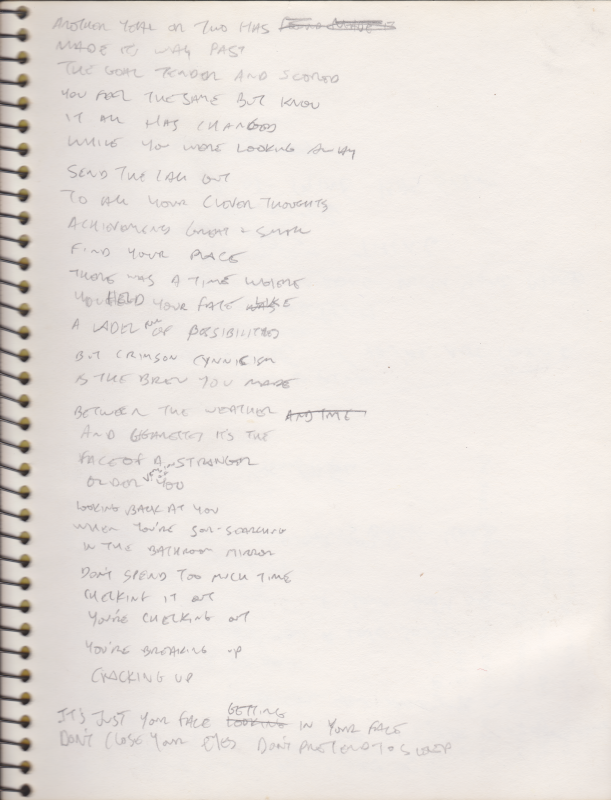 ANOTHER YEAR OR TWO HAS
MADE ITS WAY PAST
THE GOAL TENDER AND SCORED
YOU FEEL THE SAME BUT KNOW
IT ALL HAS CHANGED
WHILE YOU WERE LOOKING AWAY
SEND THE CALL OUT
TO ALL YOUR CLEVER THOUGHTS
ACHIEVEMENTS GREAT + SMALL
FIND YOUR PLACE
THERE WAS A TIME WHERE
YOU HELD YOUR FACE LIKE
A LADEL OF POSSIBILITIES
BUT CRIMSON CYNNICISM
IS THE BREW YOU MADE
BETWEEN THE WEATHER AND TIME
AND CIGARETTES ITS THE
FACE OF A STRANGER
OLDER YOU
LOOKING BACK AT YOU
WHEN YOU'RE SOUL-SEARCHING
IN THE BATHROOM MIRROR
DON'T SPEND TOO MUCH TIME
CHECKING IT OUT
YOU'RE CHECKING OUT
YOU'RE BREAKING UP
CRACKING UP
IT'S JUST YOUR FACE GETTING LOOKING IN YOUR FACE
DON'T CLOSE YOUR EYES DON'T PRETEND TO SLEEP